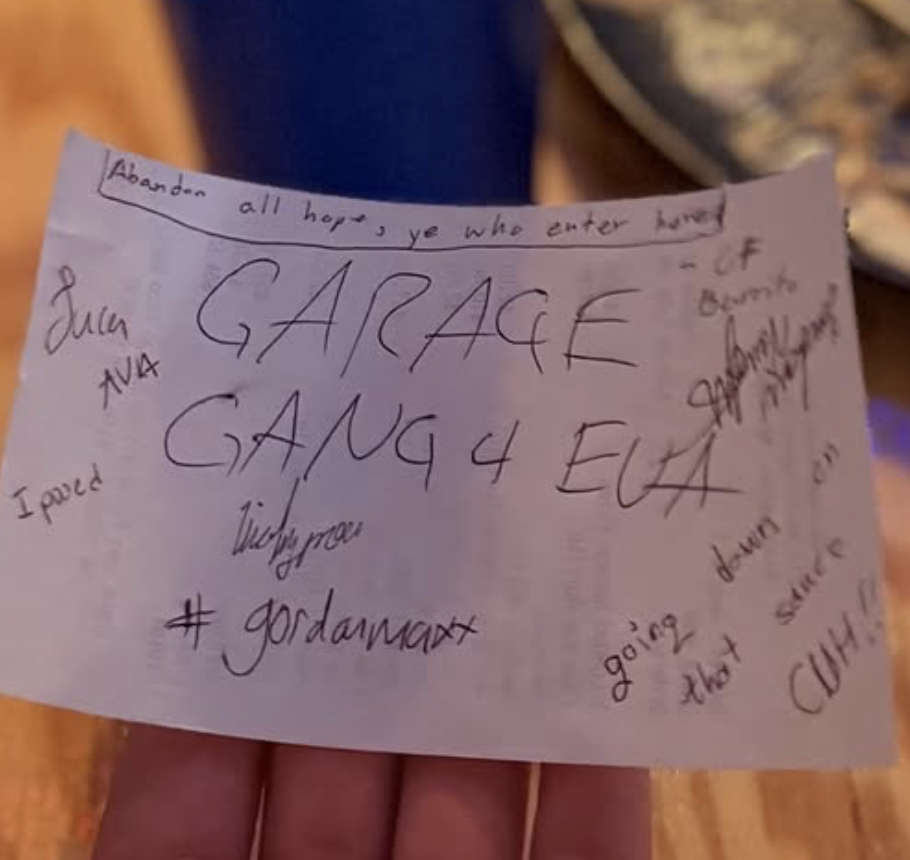 Abandon all hope, ye who enter here
GARAGE
GANG 4 EVA
Luca
AVA
I pooed
# gordanmaxx
going down on
that sauce
CUH!!